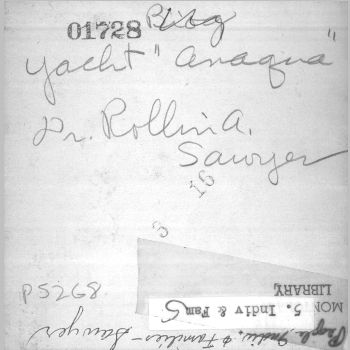 01728
Yacht "Anaqua"
Dr. Rollin A.
Sawyer
16
3
P5268
LIBRARY
MON
5. Indiv & Fam S
People, Indiv. & Families - Sawyer